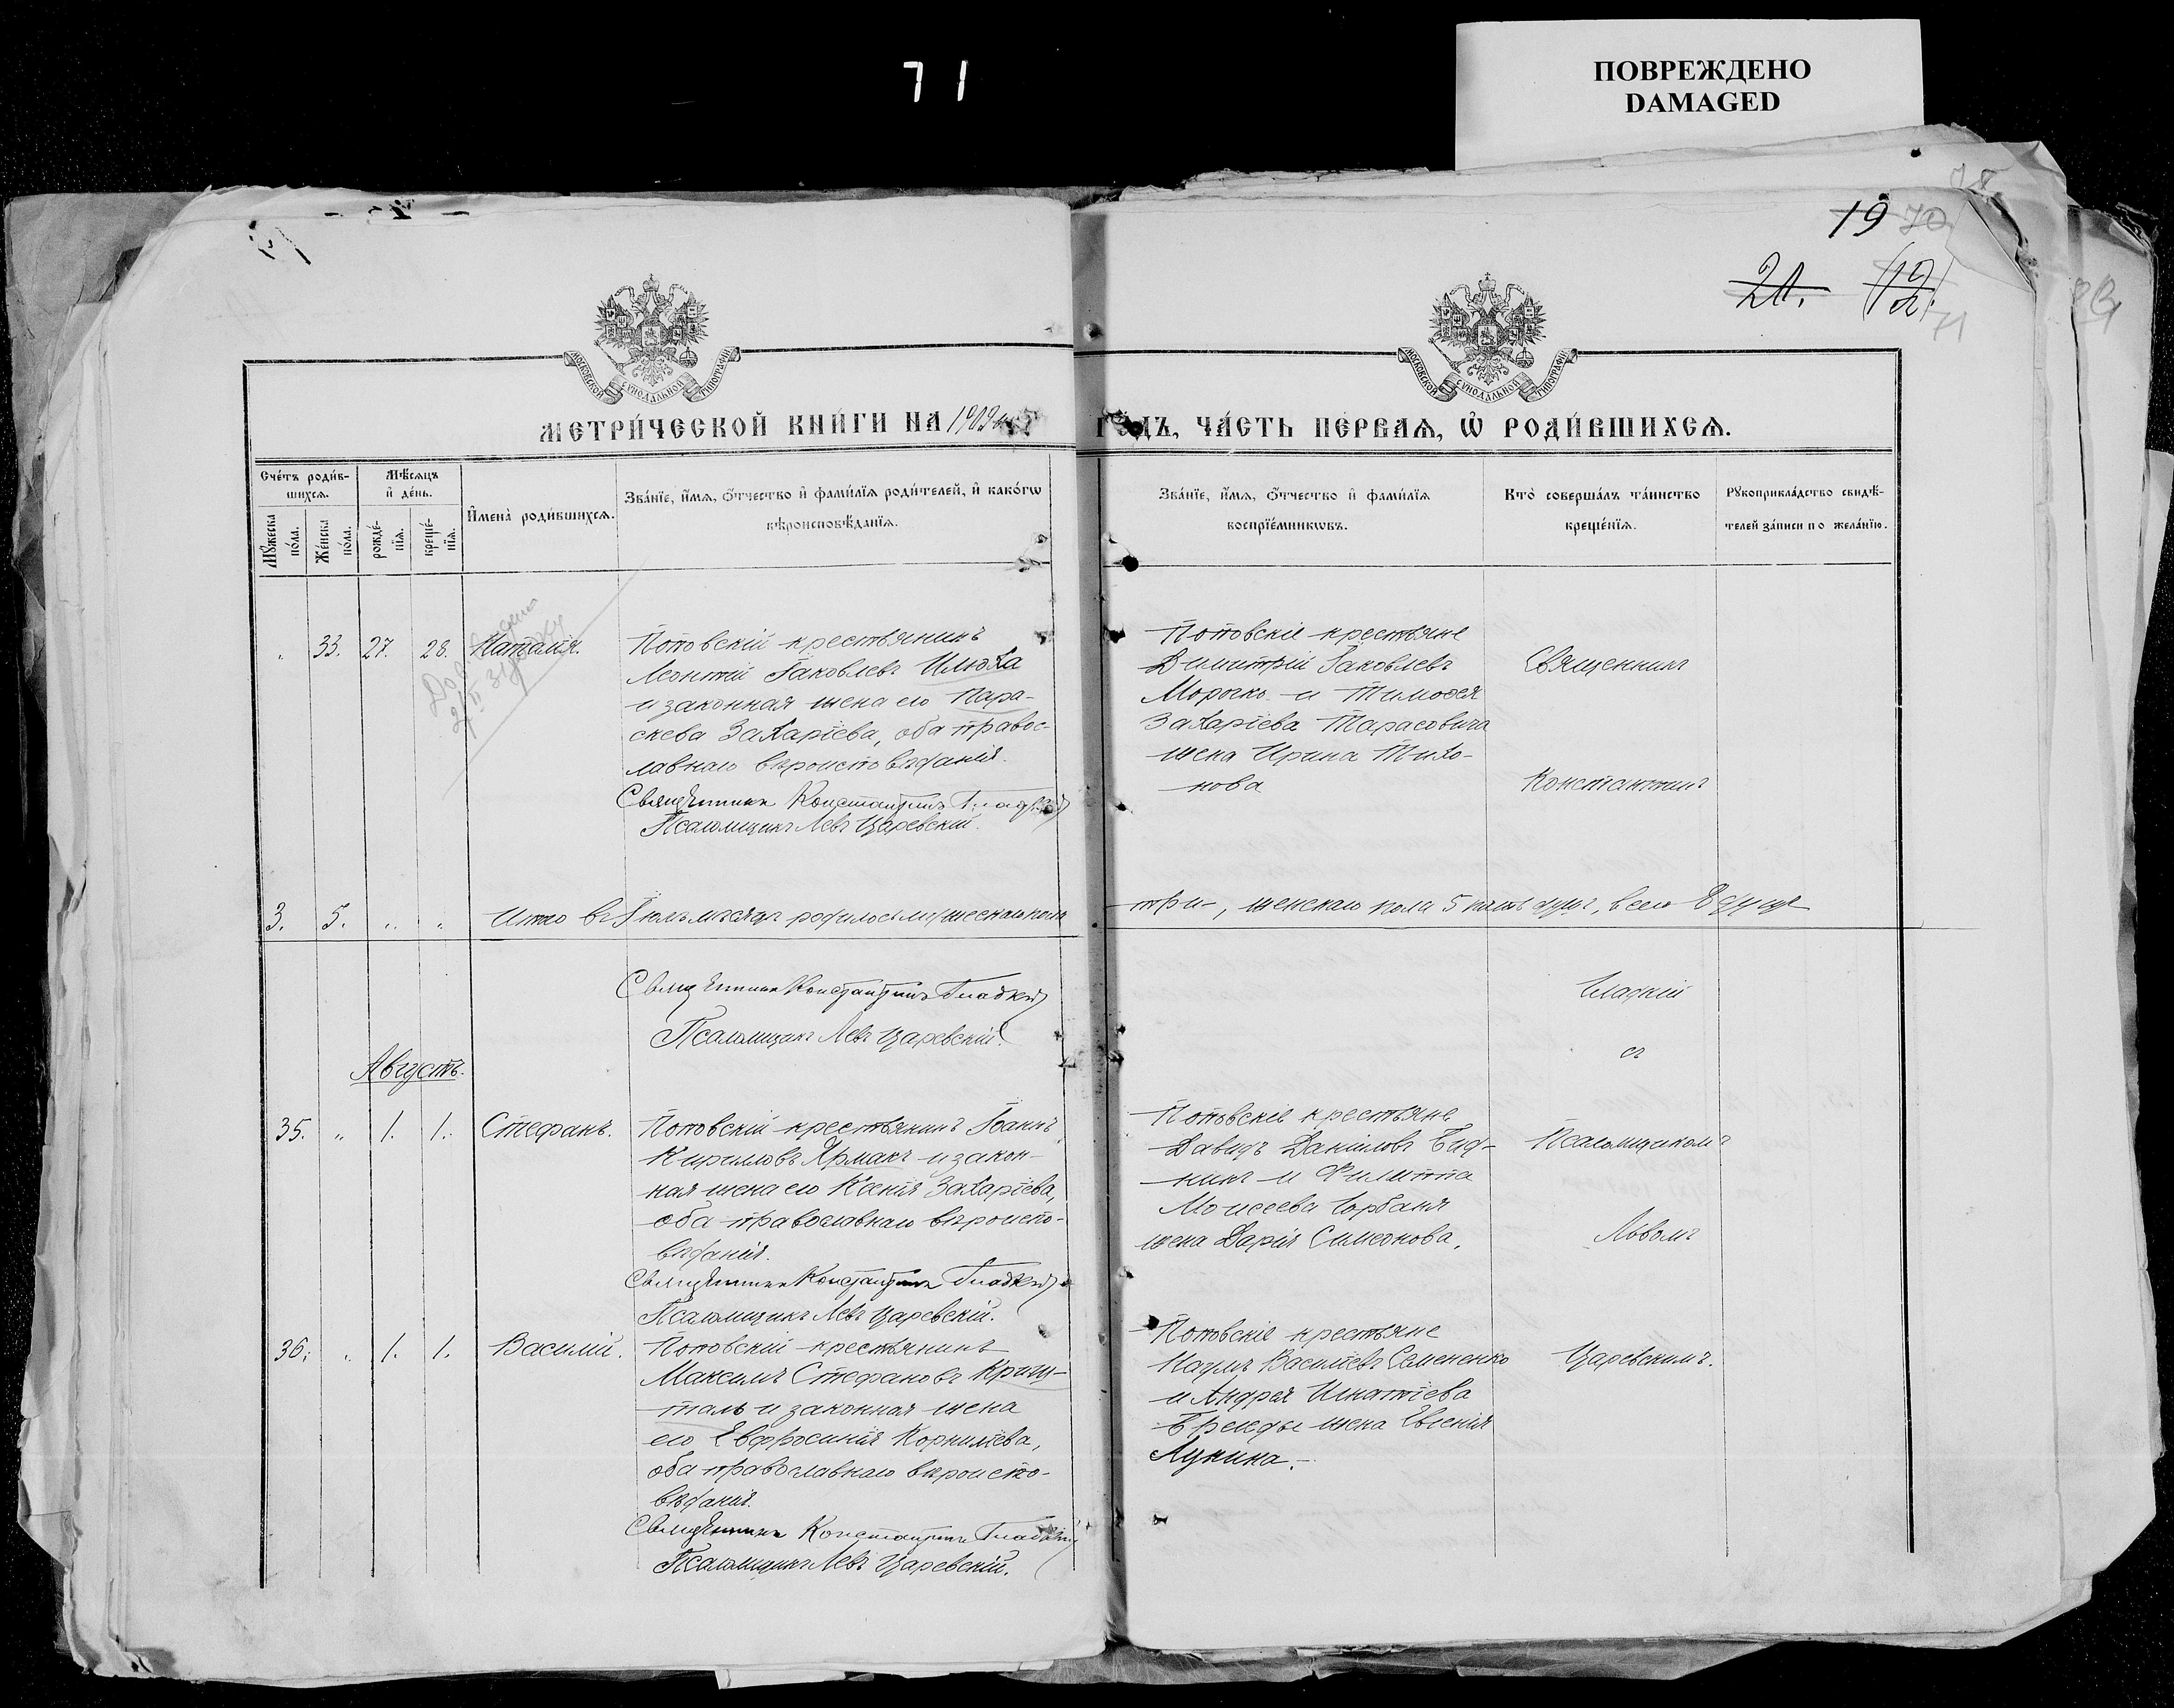 71
ПОВРЕЖДЕНО
DAMAGED
19 70
21. 12.
71
МОСКОВСКОЙ СѴНОДАЛЬНОЙ ТИПОГРАФІИ
МОСКОВСКОЙ СѴНОДАЛЬНОЙ ТИПОГРАФІИ
МЕТРИ́ЧЕСКОЙ КНИ́ГИ НА 1909
ГО́ДЪ, ЧА́СТЬ ПЕ́РВАЯ, Ѡ҆ РОДИ́ВШИХСЯ.
Сче́тъ роди́в-
шихся.
Мѣ́сяцъ
и҆ де́нь.
Мꙋ́жеска
по́ла.
Же́нска
по́ла.
рожде́-
нїя.
креще́-
нїя.
И҆мена̀ роди́вшихся.
Зва́нїе, и҆́мя, ѻ҆́тчество и҆ фами́лїя роди́телей, и҆ како́гѡ
вѣроисповѣ́данїя.
Зва́нїе, и҆́мя, ѻ҆́тчество и҆ фами́лїя
воспрїе́мникѡвъ.
Кто̀ соверша́лъ та́инство
креще́нїя.
Рꙋкоприкла́дство свидѣ́-
телей за́писи по жела́нїю.
„ 33. 27. 28. Наталія.
Поповскій крестьянинъ
Леонтій Іаковлевъ Илюха
и законная жена его Пара-
скева Захаріева, оба правос-
лавнаго вѣроисповѣданія.
Священникъ Константинъ Гладкій
Псаломщикъ Левъ Царевскій.
Поповскіе крестьяне
Димитрій Іаковлевъ
Морочко и Тимоѳея
Захаріева Тарасовича
жена Ирина Тихо-
нова
Священникъ
Константинъ
3. 5. „ „ Итого въ Іюлѣ мѣсяцѣ родилось мужескаго пола
три, женскаго пола 5 пять душъ, всего 8 душъ
Священникъ Константинъ Гладкій
Псаломщикъ Левъ Царевскій.
Гладкій
съ
Августъ.
35. „ 1. 1. Стефанъ.
Поповскій крестьянинъ Іоаннъ
Кирилловъ Ярмакъ и закон-
ная жена его Ксенія Захаріева,
оба православнаго вѣроиспо-
вѣданія.
Священникъ Константинъ Гладкій
Псаломщикъ Левъ Царевскій.
Поповскіе крестьяне
Давидъ Даніиловъ Бид-
никъ и Филиппа
Моисеева Горбаня
жена Дарія Симеонова.
Псаломщикомъ
Львомъ
36. „ 1. 1. Василій.
Поповскій крестьянинъ
Максимъ Стефановъ Крищ-
таль и законная жена
его Евфросинія Корниліева,
оба православнаго вѣроиспо-
вѣданія.
Священникъ Константинъ Гладкій
Псаломщикъ Левъ Царевскій.
Поповскіе крестьяне
Наумъ Василіевъ Семененко
и Андрея Игнатіева
Бреиды жена Евгенія
Лукина.
Царевскимъ.